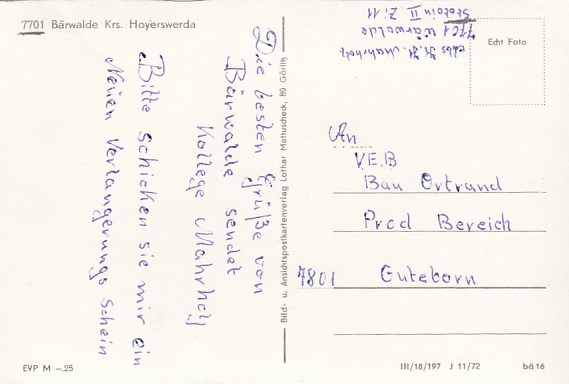 7701 Bärwalde Krs. Hoyerswerda
Die besten Grüße von
Bärwalde sendet
Kollege Mahrholz
Bitte schicken sie mir ein
Neuen Verlangerungs Schein
EVP M –.25
Bild- u. Ansichtspostkartenverlag Lothar Mattuscheck, 89 Görlitz
Abs H. H. Mahrholz
7701 Bärwalde
II Z. 11
Echt Foto
An
V.E.B
Bau Ortrand
Prod Bereich
7801 Guteborn
III/18/197 J 11/72 bä 16